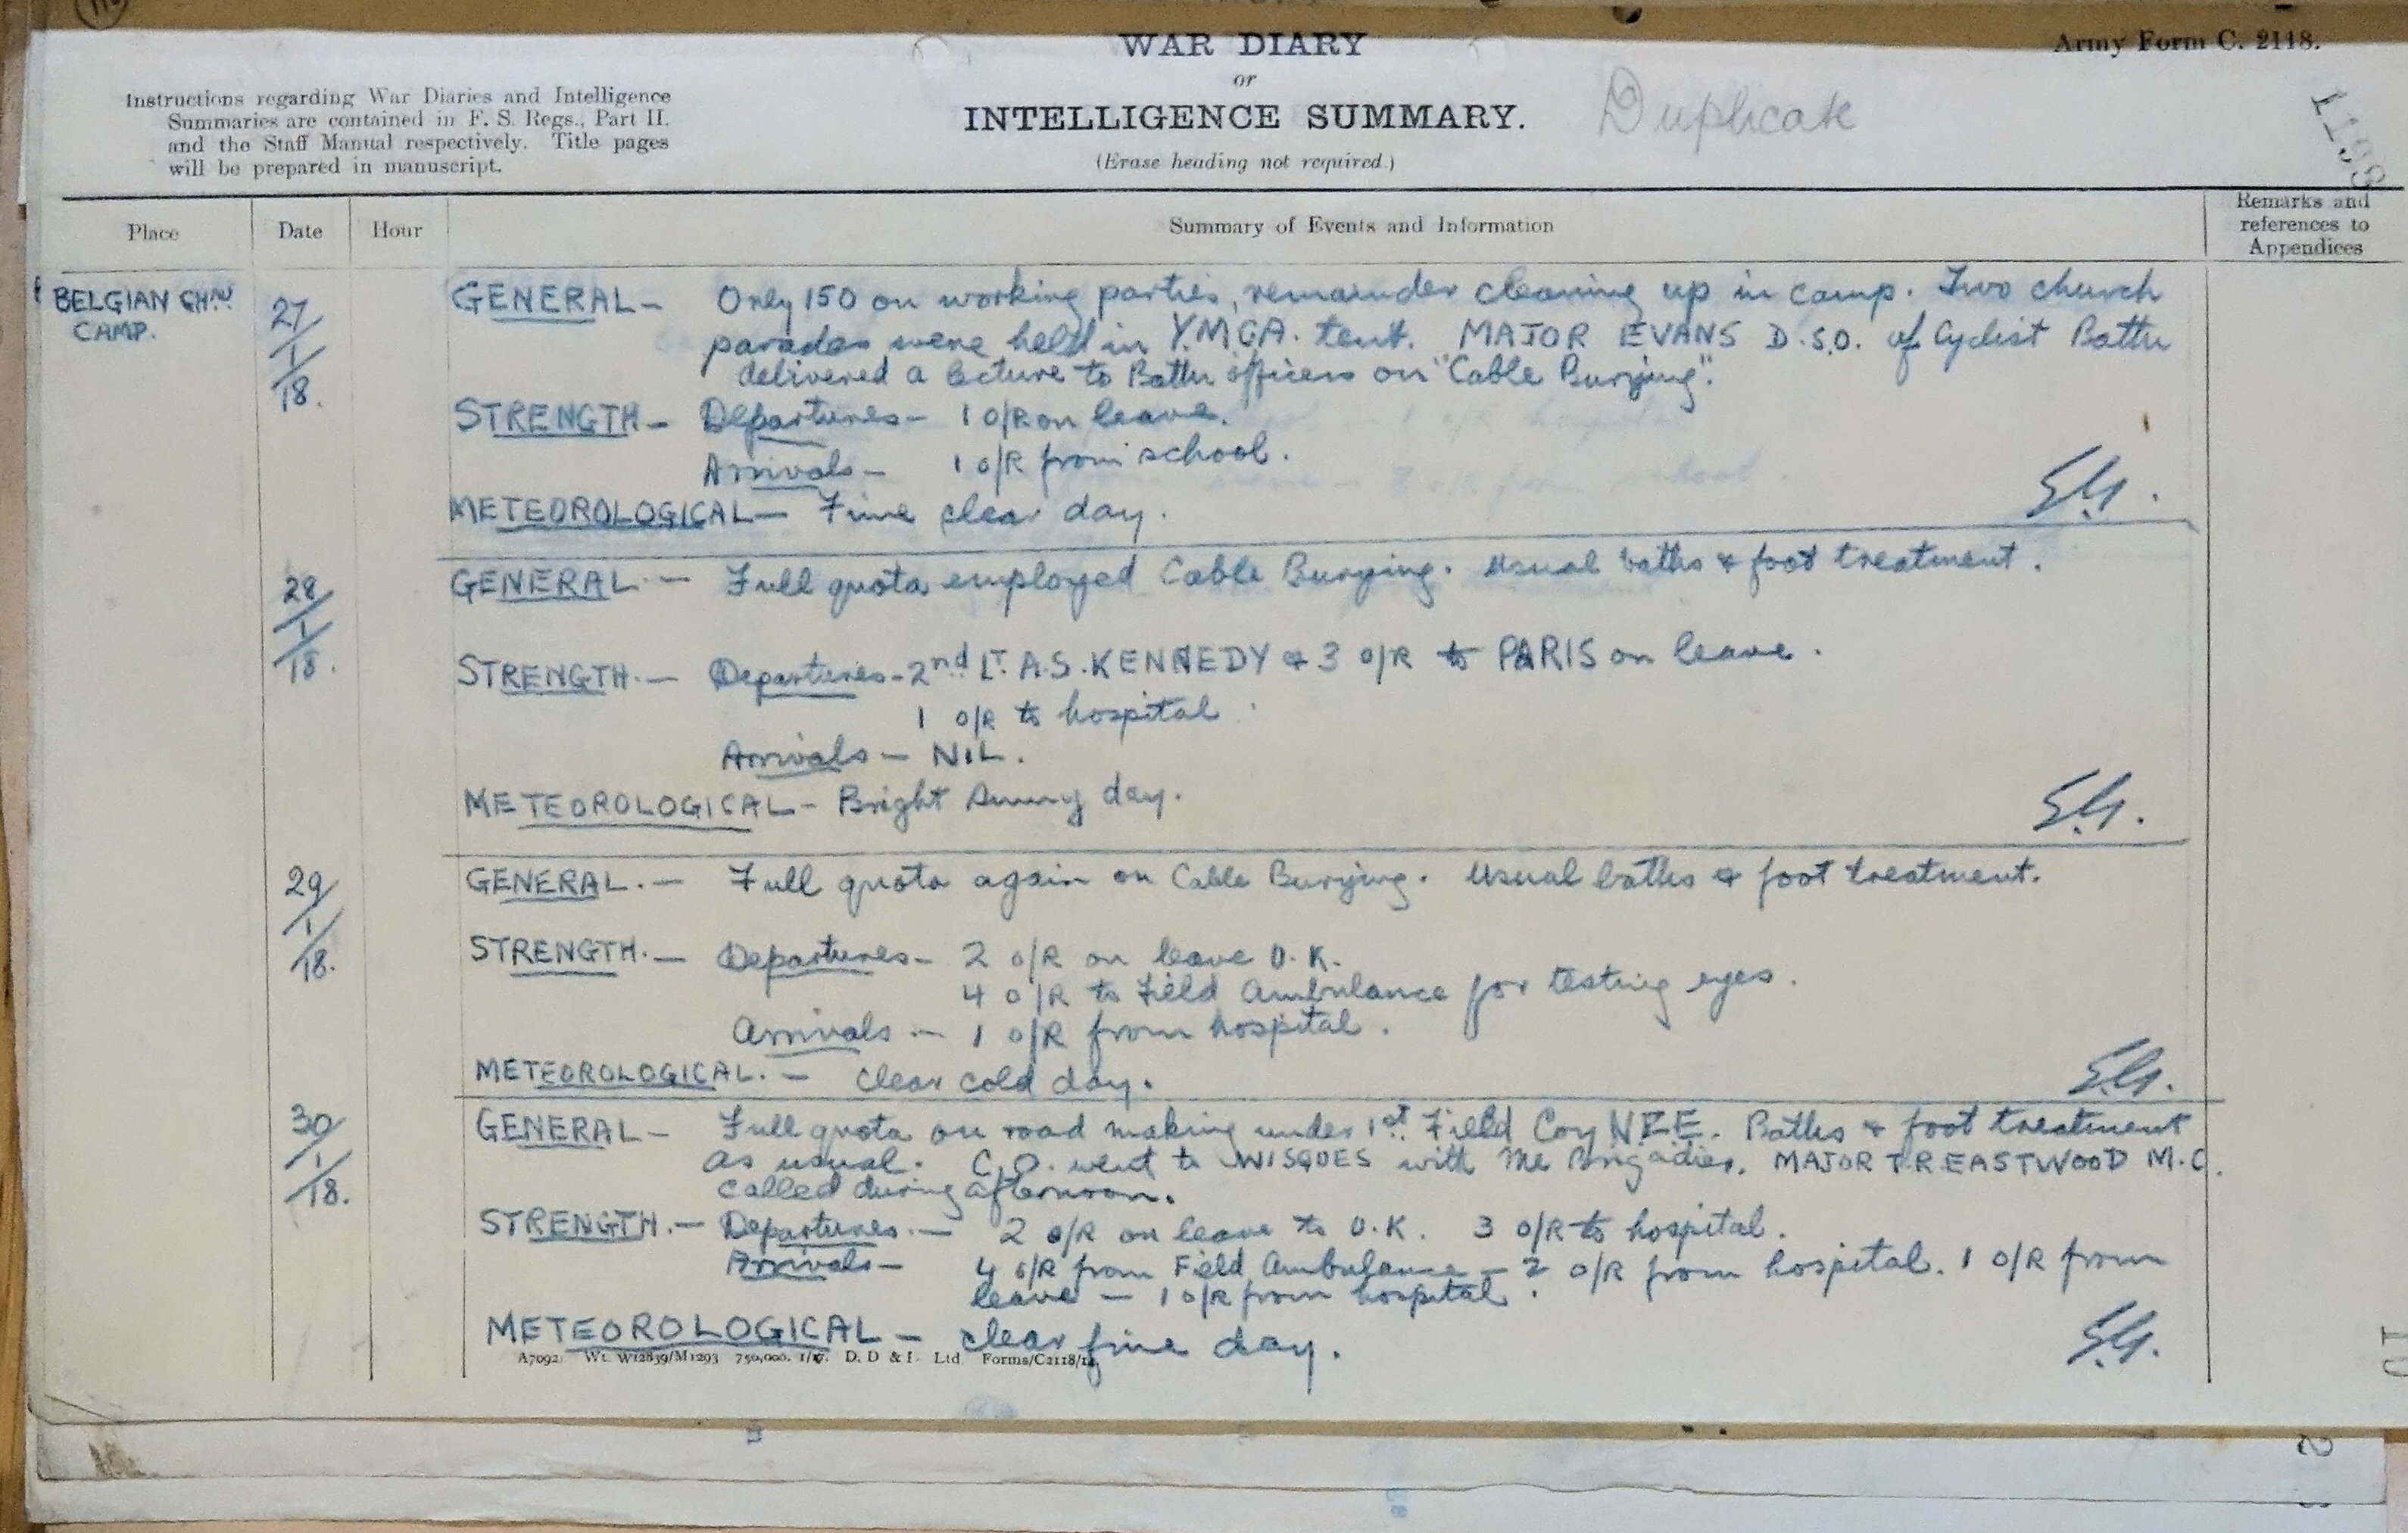 WAR DIARY
Army Form C. 2118.
or
INTELLIGENCE SUMMARY.
Duplicate
(Erase heading not required.)
Instructions regarding War Diaries and Intelligence
Summaries are contained in F. S. Regs., Part II.
and the Staff Manual respectively. Title pages
will be prepared in manuscript.
Place
Date
Hour
Summary of Events and Information
Remarks and
references to
Appendices
BELGIAN CHAU
CAMP.
27/1/18.
GENERAL— Only 150 on working parties, remainder cleaning up in camp. Two church
parades were held in Y.M.C.A. tent. MAJOR EVANS D.S.O. of Cyclist Battn
delivered a lecture to Battn officers on "Cable Burying".
STRENGTH— Departures— 1 O/R on leave.
Arrivals— 1 O/R from school.
METEOROLOGICAL— Fine clear day.
28/1/18.
GENERAL.— Full quota employed Cable Burying. Usual baths & foot treatment.
STRENGTH.— Departures-2nd LT. A.S. KENNEDY & 3 O/R to PARIS on leave.
1 O/R to hospital.
Arrivals— NIL.
METEOROLOGICAL- Bright Sunny day.
29/1/18.
GENERAL.— Full quota again on Cable Burying. Usual baths & foot treatment.
STRENGTH.— Departures— 2 O/R on leave U.K.
4 O/R to Field Ambulance for testing eyes.
Arrivals.— 1 O/R from hospital.
METEOROLOGICAL.— Clear cold day.
30/1/18.
GENERAL— Full quota on road making under 1st. Field Coy N.Z.E. Baths & foot treatment
as usual. C.O. went to WISQUES with the Brigadier. MAJOR T.R. EASTWOOD M.C.
called during afternoon.
STRENGTH.— Departures.— 2 O/R on leave to U.K. 3 O/R to hospital.
Arrivals— 4 O/R from Field Ambulance — 2 O/R from hospital. 1 O/R from
leave — 1 O/R from hospital.
METEOROLOGICAL— clear fine day.
A7092. Wt. W12839/M1293 750,000. 1/17. D. D & L. Ltd. Forms/C2118/14.